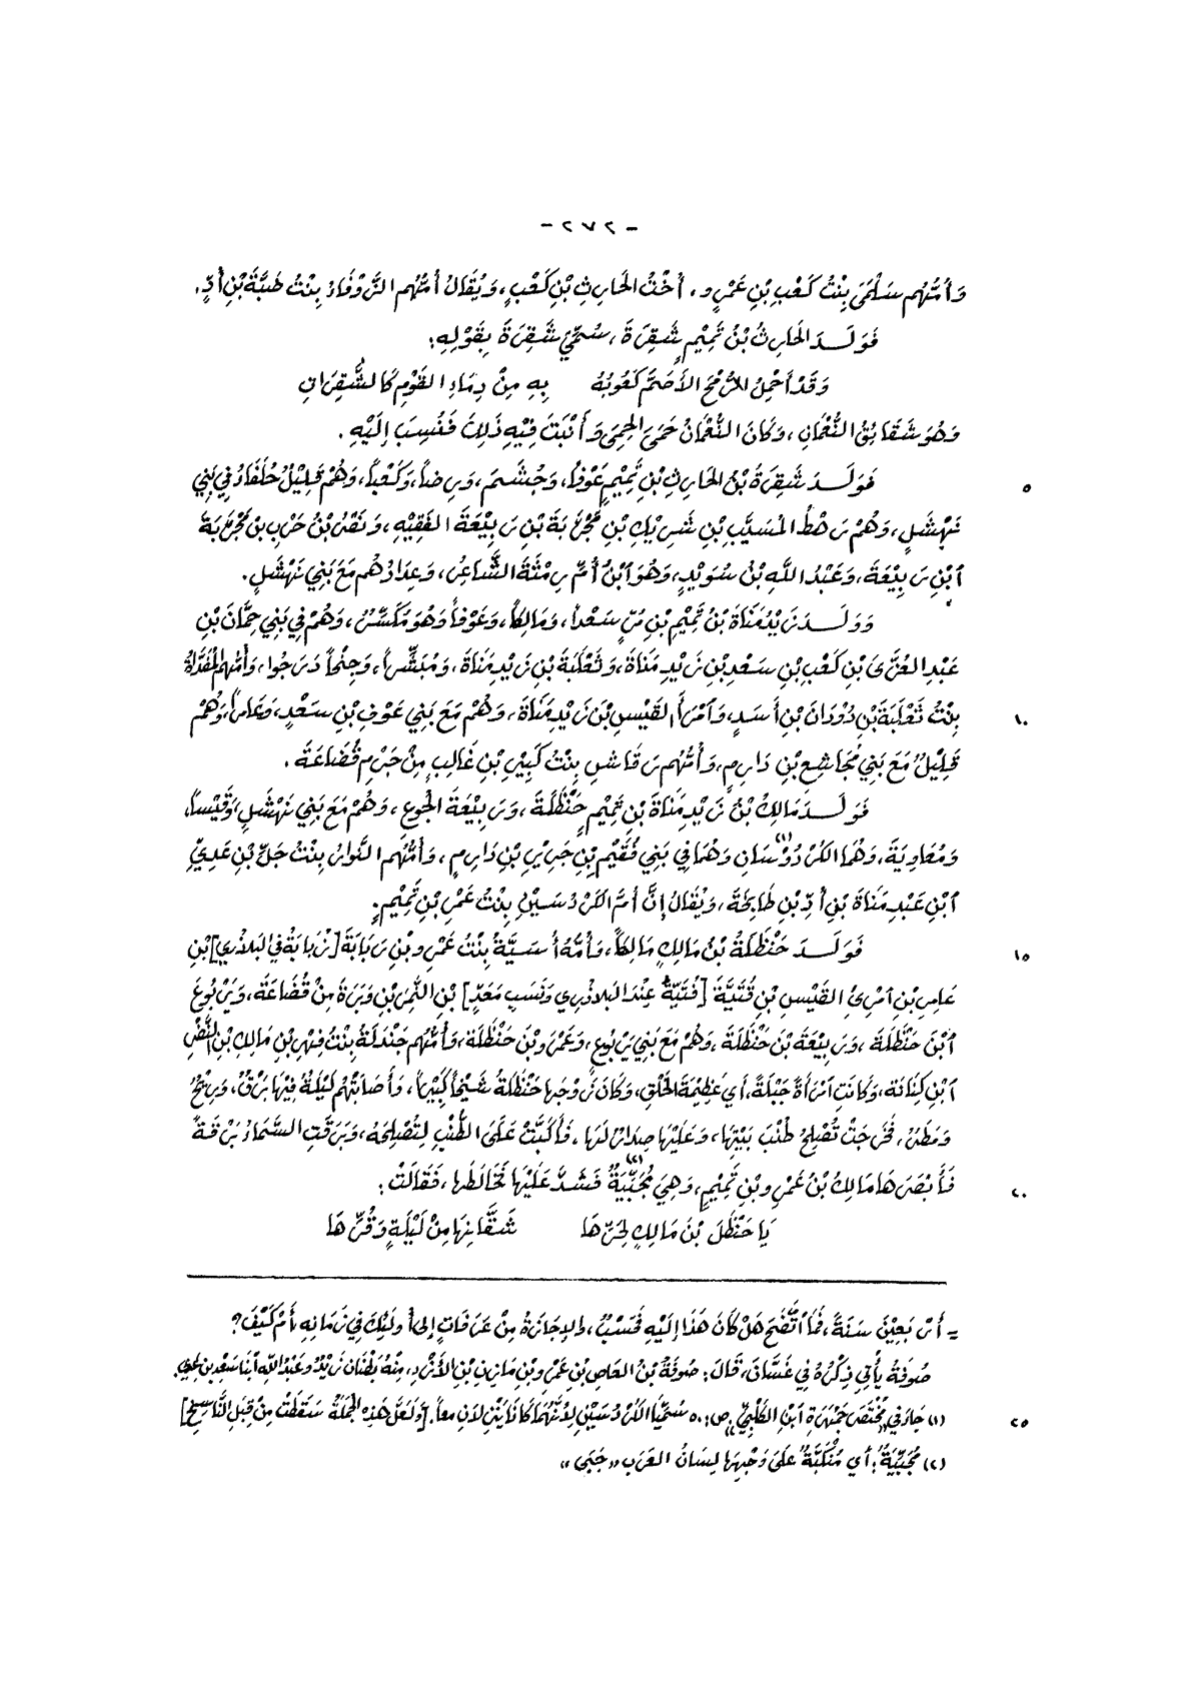 - ٢٧٢ -
وَأُمُّهُم سَلْمَىَ بِنْتُ كَعْبِ بْنِ عَمْرٍو، أُخْتُ الحَارِثِ بْنِ كَعْبٍ، وَيُقَالُ أُمُّهُم الزَّرْقَاءُ بِنْتُ ضَبَّةَ بْنِ أُدٍّ.
فَوَلَـدَ الحَارِثُ بْنُ تَمِيْمٍ شَقِرَةَ، سُمِّيَ شَقِرَةَ بِقَوْلِهِ:
وَقَدْ أَحْمِلُ الرُّمْحَ الأَصَمَّ كُعُوبُهُ بِهِ مِنْ دِمَاءِ القَوْمِ كَالشَّقِرَاتِ
وَهُوَ شَقَائِقُ النُّعْمَانِ، وَكَانَ النُّعْمَانُ حَمَىَ الحِمَى وَأَنْبَتَ فِيْهِ ذَلِكَ فَنُسِبَ إِلَيْهِ.
فَوَلَـدَ شَقِرَةُ بْنُ الحَارِثِ بْنِ تَمِيْمٍ عَوْفاً، وَجُشَمَ، وَرِضاً، وَكَعْباً، وَهُمْ قَلِيْلٌ حُلَفَاءُ فِي بَنِي ٥
نَهْشَلٍ، وَهُمْ رَهْطُ المُسَيَّبِ بْنِ شَرِيْكِ بْنِ مَجْرَبَةَ بْنِ رَبِيْعَةَ الفَقِيْهِ، وَنَصْرُ بْنُ حَرْبِ بنِ مَجْرَبَةَ
ابْنِ رَبِيْعَةَ، وَعَبْدُ اللَّهِ بْنُ سُوَيْدٍ، وَهُوَ ابْنُ أُمِّ رِمْثَةَ الشَّاعِرُ، وَعِدَادُهُم مَعَ بَنِي نَهْشَلٍ.
وَوَلَـدَ زَيْدُ مَنَاةَ بْنُ تَمِيْمِ بْنِ مُرٍّ سَعْداً، وَمَالِكاً، وَعَوْفاً وَهُوَ مُكَسِّرٌ، وَهُمْ فِي بَنِي حِمَّانَ بْنِ
عَبْدِ العُزَّىَ بْنِ كَعْبِ بْنِ سَعْدِ بْنِ زَيْدِ مَنَاةَ، وَثَعْلَبَةَ بْنِ زَيْدِ مَنَاةَ، وَمُبَشِّراً، وَجِنْحاً دَرَجُوا، وَأُمُّهُم المُفَدَّاةُ
بِنْتُ ثَعْلَبَةَ بْنِ دُوْدَانَ بْنِ أَسَدٍ، وَامْرَأَ القَيْسِ بْنَ زَيْدِ مَنَاةَ، وَهُمْ مَعَ بَنِي عَوْفِ بْنِ سَعْدٍ، وَعَامِراً، وَهُمْ ١٠
قَلِيْلٌ مَعَ بَنِي مُجَاشِعِ بْنِ دَارِمٍ، وَأُمُّهُم رَقَاشِ بِنْتُ كَبِيْرِ بْنِ غَالِبٍ مِنْ جَرْمِ قُضَاعَةَ.
فَوَلَـدَ مَالِكُ بْنُ زَيْدِ مَنَاةَ بْنِ تَمِيْمٍ حَنْظَلَةَ، وَرَبِيْعَةَ الجُوعِ، وَهُمْ مَعَ بَنِي نَهْشَلٍ، وَقَيْساً،
وَمُعَاوِيَةَ، وَهُمَا الكُرْدُوْسَانِ (١) وَهُمَا فِي بَنِي فُقَيْمِ بْنِ جَرِيْرِ بْنِ دَارِمٍ، وَأُمُّهُم النَّوَارُ بِنْتُ جَلِّ بْنِ عَدِيِّ
ابْنِ عَبْدِ مَنَاةَ بْنِ أُدِّ بْنِ طَابِخَةَ، وَيُقَالُ إِنَّ أُمَّ الكُرْدُسَيْنِ بِنْتُ عَمْرِو بْنِ تَمِيْمٍ.
فَوَلَـدَ حَنْظَلَةُ بْنُ مَالِكٍ مَالِكاً، وَأُمُّهُ أُسَيَّةُ بِنْتُ عَمْرِو بْنِ رَبَابَةَ [زَبَابَةُ فِي البَلاذُرِي] بْنِ ١٥
عَامِرِ بْنِ امْرِئِ القَيْسِ بْنِ فُتَيَّةَ [فُتَيَّةُ عِنْدَ البَلاذُرِي وَنَسَبِ مَعَدٍّ] بْنِ النَّمِرِ بْنِ وَبَرَةَ مِنْ قُضَاعَةَ، وَيَرْبُوعَ
ابْنَ حَنْظَلَةَ، وَرَبِيْعَةَ بْنَ حَنْظَلَةَ، وَهُمْ مَعَ بَنِي يَرْبُوعٍ، وَعَمْرَو بْنَ حَنْظَلَةَ، وَأُمُّهُم جَنْدَلَةُ بِنْتُ فِهْرِ بْنِ مَالِكِ بْنِ النَّضْرِ
ابْنِ كِنَانَة، وَكَانَتِ امْرَأَةً جَبْلَةً، أَي عَظِيْمَةَ الخَلْقِ، وَكَانَ زَوْجُهَا حَنْظَلَةُ شَيْخاً كَبِيْراً، وَأَصَابَتْهُم لَيْلَةٌ فِيْهَا بَرْقٌ، وَرِيْحٌ
وَمَطَرٌ، فَخَرَجَتْ تُصْلِحُ طُنْبَ بَيْتِهَا، وَعَلَيْهَا صِدَارٌ لَهَا، فَأَكَبَّتْ عَلَىَ الطُّنْبِ لِتُصْلِحَهُ، وَبَرَقَتِ السَّمَاءُ بَرْقَةً
فَأَبْصَرَهَا مَالِكُ بْنُ عَمْرِو بْنِ تَمِيْمٍ، وَهِيَ مُجَبِّيَةٌ (٢) فَشَدَّ عَلَيْهَا فَخَالَطَهَا، فَقَالَتْ: ٢٠
يَا حَنْظَلَ بْنَ مَالِكٍ لِحَرِّهَا شَفَّانُهَا مِنْ لَيْلَةٍ وَقُرِّهَا
= أَرْبَعِيْنَ سَنَةً، فَمَا اتَّضَحَ هَلْ كَانَ هَذَا إِلَيْهِ فَحَسْبُ، والإِجَازَةُ مِنْ عَرَفَاتٍ إِلى أُولَئِكَ فِي زَمَانِهِ، أَمْ كَيْفَ؟
صُوفَةُ يَأْتِي ذِكْرُهُ فِي غَسَّانَ، قَالَ: صُوفَةُ بْنُ العَاصِ بْنِ عَمْرِو بْنِ مَازِنِ بْنِ الأَزْدِ، مِنْهُ بَطْنَانِ زَيْدٌ وعَبْدُ اللَّهِ ابْنَا سَعْدِ بنِ عَدِيّ.
(١) جَاءَ فِي مُخْتَصَرِ جَمْهَرَةِ ابْنِ الكَلْبِيِّ، ص: ٥٠ سُمِّيَا الكُرْدُسَيْنِ لِأَنَّهُمَا كَانَا يَنْزِلَانِ مَعاً. [وَلَعَلَّ هَذِهِ الجُمْلَةُ سَقَطَتْ مِنْ قِبَلِ النَّاسِخِ] ٢٥
(٢) مُجَبِّيَةٌ: أَي مُنْكَبَّةٌ عَلَىَ وَجْهِهَا لِسَانُ العَرَبِ «جَبَى»